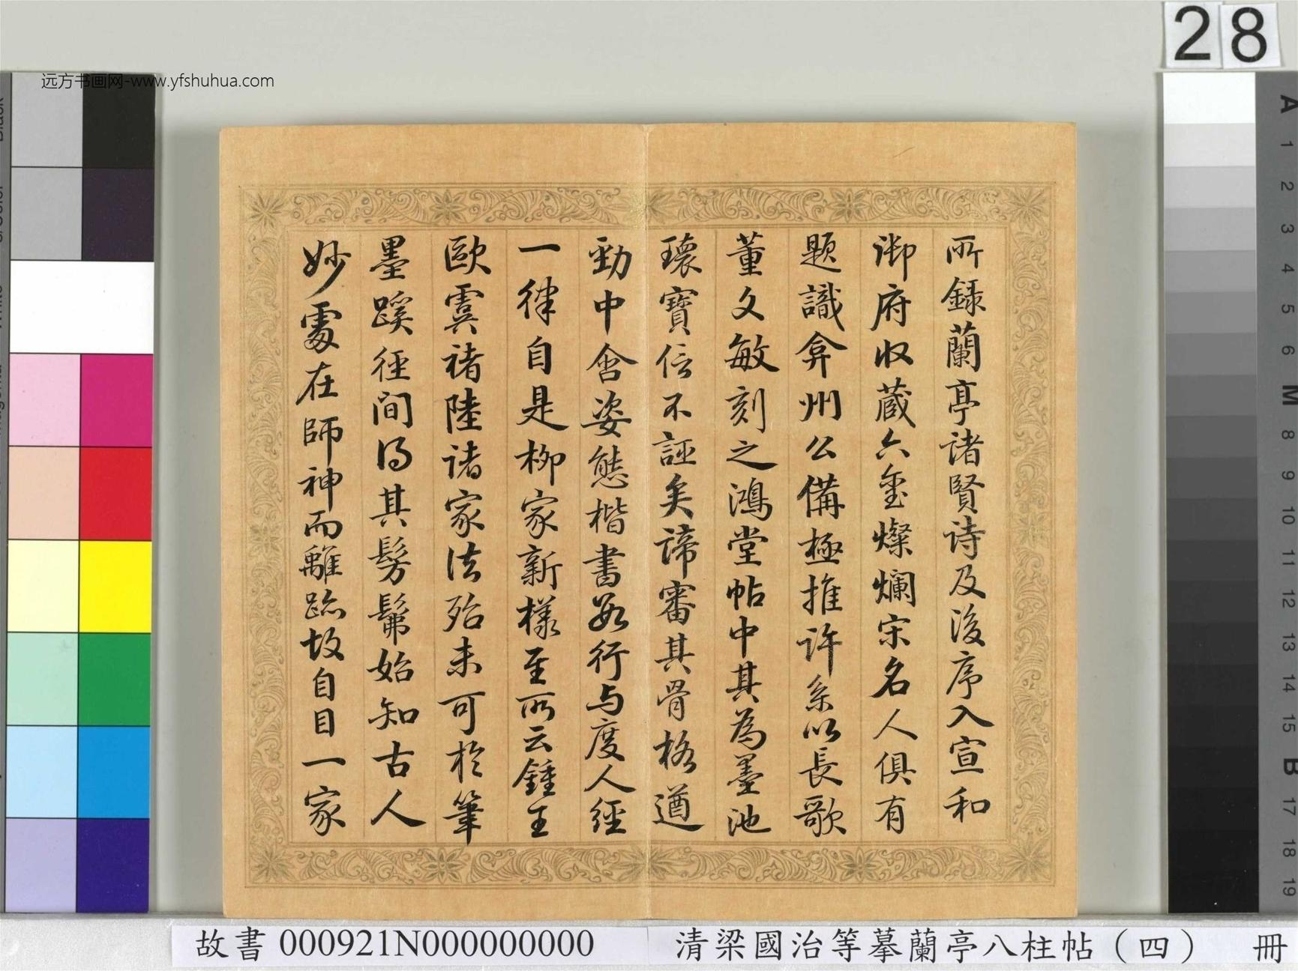 28
远方书画网-www.yfshuhua.com
所録蘭亭諸賢诗及後序入宣和
御府收蔵六璽燦爛宋名人俱有
题識弇州公備極推许系以長歌
董文敏刻之鴻堂帖中其為墨池
瓌寶信不誣矣諦審其骨格遒
勁中含姿態楷書数行与度人經
一律自是柳家新様至所云鍾王
歐虞褚陸诸家法殆未可於筆
墨蹊径间得其髣髴始知古人
妙處在師神而離跡故自自一家
A
1
2
3
4
5
6
M
8
9
10
11
12
13
14
15
B
17
18
19
故書 000921N000000000
清梁國治等摹蘭亭八柱帖（四） 冊